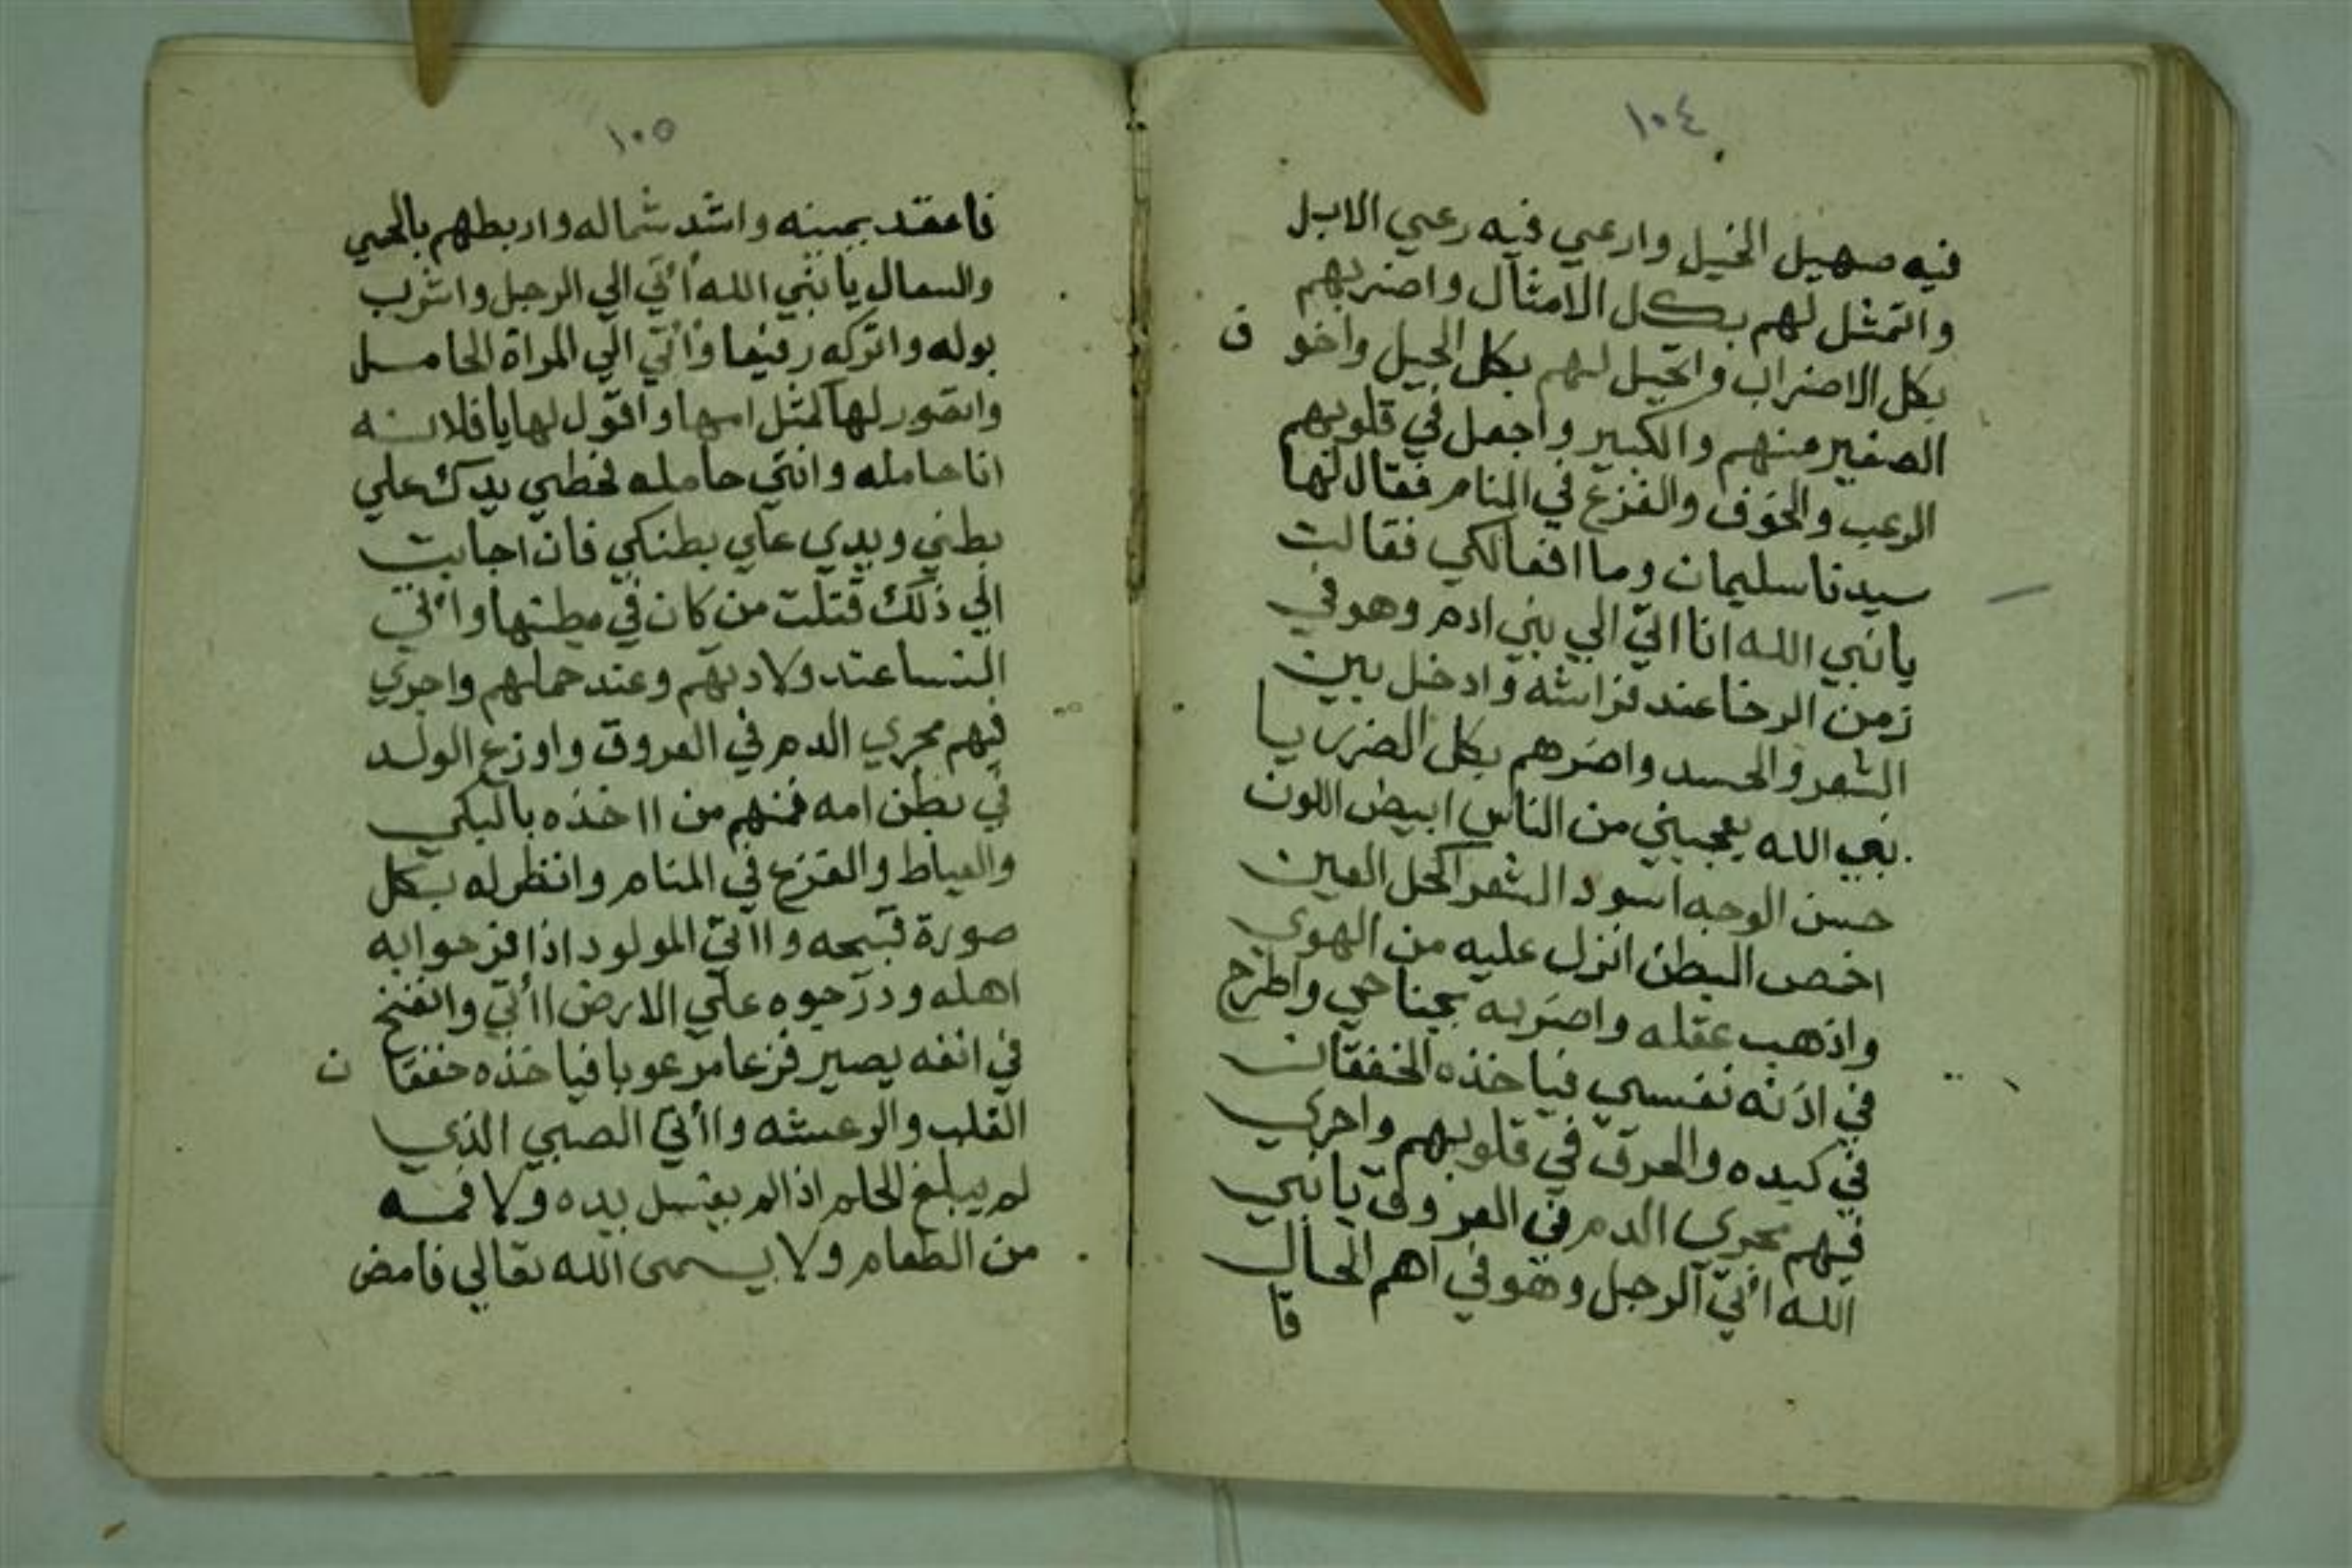 ١٠٤
فيه صهيل الخيل وارعي فيه رعي الابل
واتمثل لهم بكل الامثال واضربهم
بكل الاضراب واتحيل لهم بكل الحيل واخو ف
الصغير منهم والكبير واجعل في قلوبهم
الرعب والخوف والفزع في المنام فقال لها
سيدنا سليمان وما افعالكي فقالت
يانبي الله انا اتي الي بني ادم وهو في
زمن الرخا عند فراشه وادخل بين
الشعر والحسد واضرهم بكل الضرر يا
نبي الله يعجبني من الناس ابيض اللون
حسن الوجه اسود الشعر اكحل العين
اخمص البطن انزل عليه من الهوي
واذهب عقله واضربه بجناحي واطرح
في اذنه نفسي فياخذه الخفقان
في كبده والعرق في قلوبهم واجري
فيهم مجري الدم في العروق يا نبي
الله اتي الرجل وهو في اهم الحال
فا
١٠٥
فاعقد يمينه واشد شماله واربطهم بالحمي
والسعال يا نبي الله أأتي الي الرجل واشرب
بوله واتركه رفيعا وأاتي الي المراة الحامل
واتصور لها كمثل امها واقول لها يا فلانه
انا حامله وانتي حامله فحطي يدك علي
بطني ويدي علي بطنكي فان اجابت
الي ذلك قتلت من كان في بطنها وأاتي
النسا عند ولادتهم وعند حملهم واجري
فيهم مجري الدم في العروق واوزع الولد
في بطن امه فمنهم من ااخذه بالبكي
والعياط والفزع في المنام وانظر له بكل
صورة قبيحه وااتي المولود اذا فرحوا به
اهله ودرجوه علي الارض اأتي وانفخ
في انفه يصير فزعا مرعوبا فياخذه خفقا ن
القلب والرعشه واأتي الصبي الذي
لم يبلغ الحلم اذا لم يغتسل يده ولا فمه
من الطعام ولا يسمى الله تعالي فامض